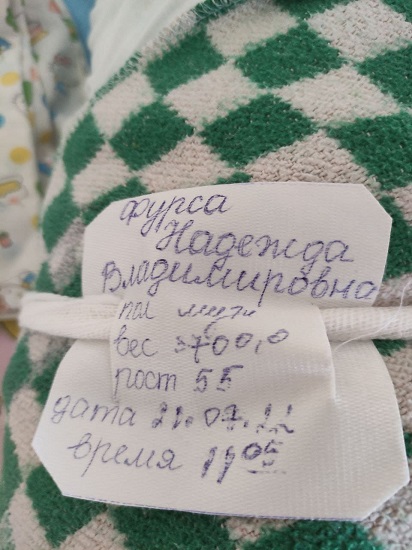 фурса
Надежда
Владимировна
пол муж
вес 3700,0
рост 55
дата 21.07.22
время 11 05